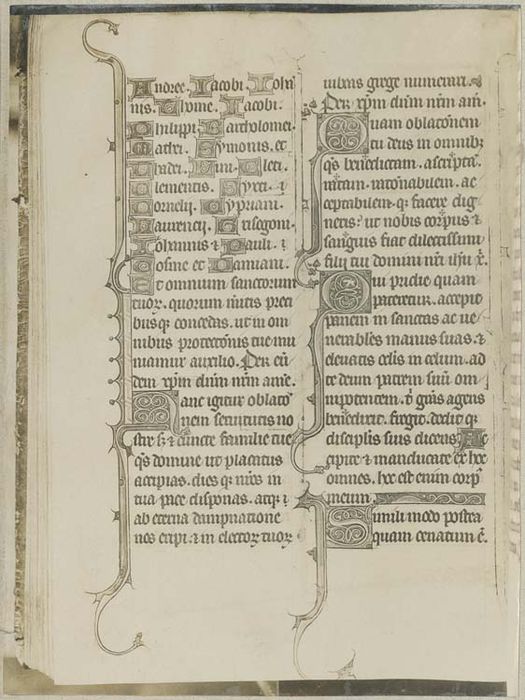 Andree. Jacobi. Joha
nis. Thome. Jacobi.
Philippi. Bartholomei.
Mathei. Symonis. et
Thadei. Lini. Cleti.
Clementis. Syxti. ⁊
Cornelij. Cypriani.
Laurencij. Grisogoni.
Johannis ⁊ Pauli. ⁊
Cosme et Damiani.
Et omnium sanctorum
tuoꝝ. quorum mĩtis preci
busqꝫ concedas. ut in om
nibus protectõnis tue mu
niamur auxilio. Per eũ
dem xp̃m dñm nr̃m am̃e.
Hanc igitur oblatõ
nem seruitutis no
stre sꝫ ⁊ cuncte familie tue
q̃s domine ut placatus
accipias. dies qꝫ nr̃os in
tua pace disponas. atqꝫ ⁊
ab eterna dampnatione
nos eripi. ⁊ in electoꝝ tuoꝝ
iubeas grege numerari.
Per xp̃m dñm nr̃m am̃.
Quam oblatõnem
tu deus in omnibꝫ
q̃s benedictam. ascriptã.
ratam. ratõnabilem. ac
ceptabilem qꝫ facere dig
neris. ut nobis corpus ⁊
sanguis fiat dilectissimi
filij tui domini nr̃i ih̃u x̃.
Qui pridie quam
pateretur. accepit
panem in sanctas ac ue
nerabiles manus suas. ⁊
eleuatis celis in celum. ad
te deum patrem suũ om
nipotentem. t̃ gr̃as agens
benedixit. fregit. dedit qꝫ
discipulis suis dicens. Ac
cipite ⁊ manducate ex hoc
omnes. hoc est enim corpꝰ
meum.
Simili modo postea
quam cenatum ẽ.